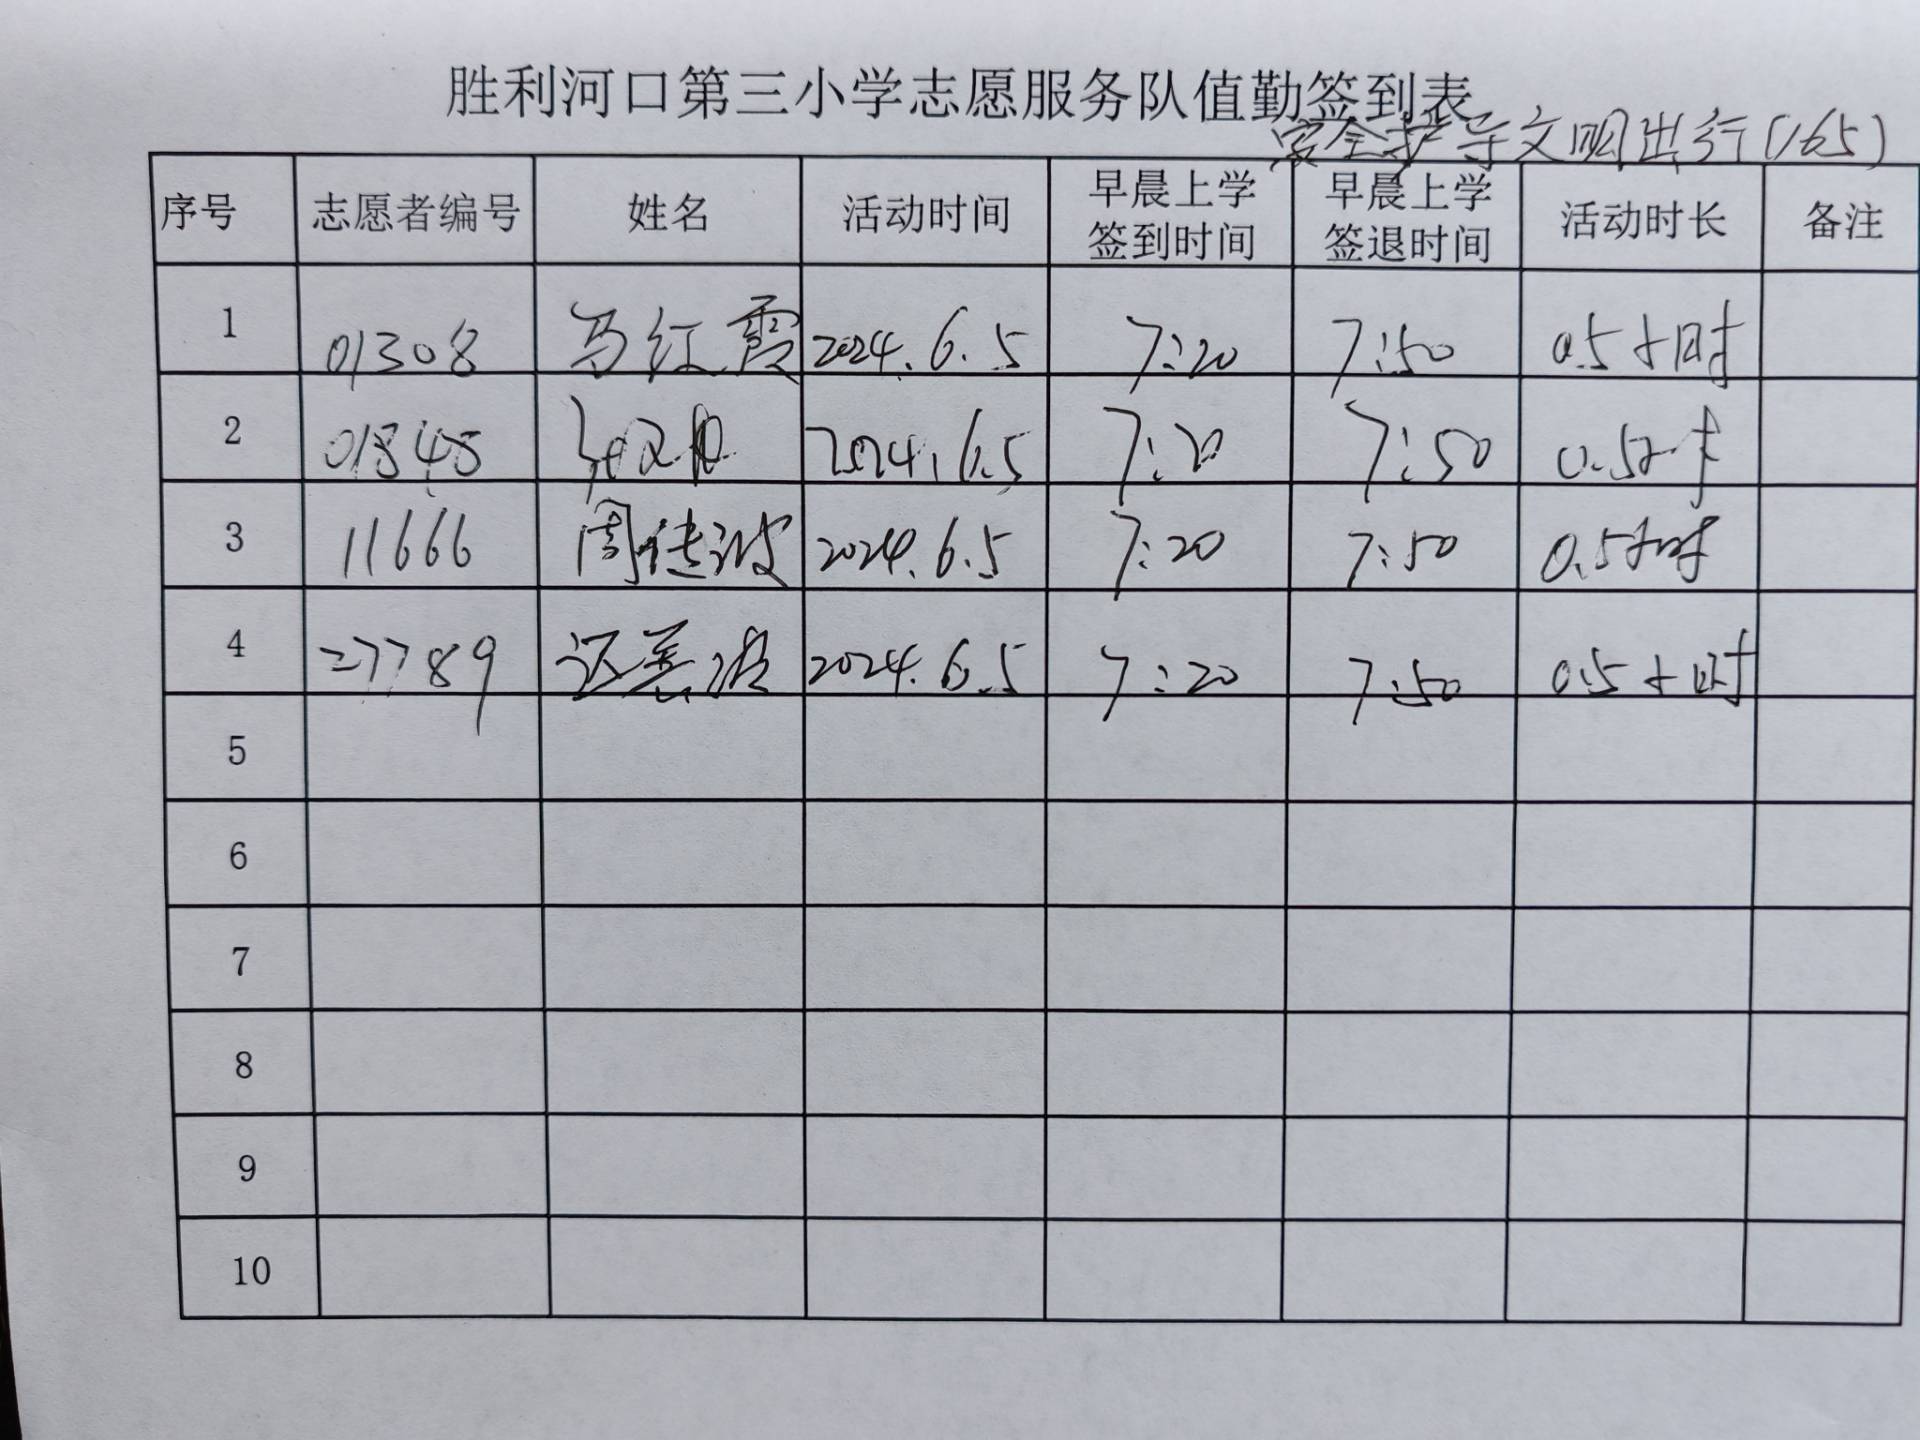 胜利河口第三小学志愿服务队值勤签到表
安全护导文明出行(165)
序号 志愿者编号 姓名 活动时间 早晨上学签到时间 早晨上学签退时间 活动时长 备注
1 01308 马红霞 2024.6.5 7:20 7:50 0.5小时
2 01848 2024.6.5 7:20 7:50 0.5小时
3 11666 周传波 2024.6.5 7:20 7:50 0.5小时
4 27789 2024.6.5 7:20 7:50 0.5小时
5
6
7
8
9
10